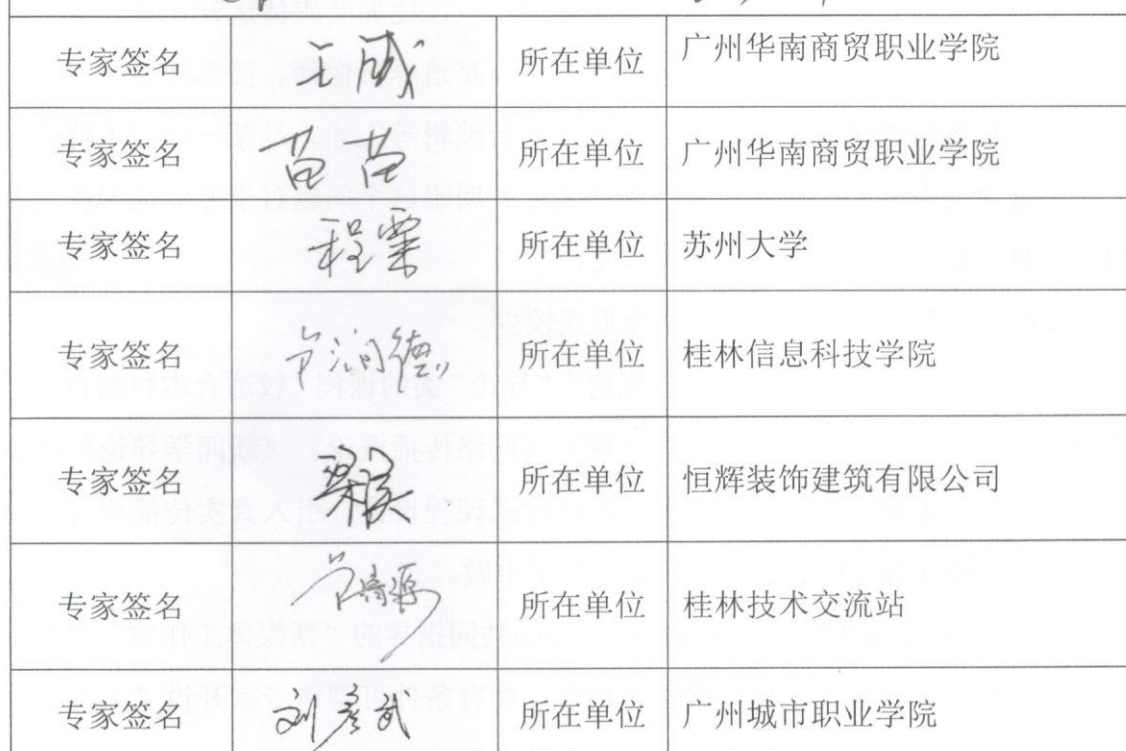 专家签名 王威 所在单位 广州华南商贸职业学院
专家签名 苗苗 所在单位 广州华南商贸职业学院
专家签名 程粟 所在单位 苏州大学
专家签名 所在单位 桂林信息科技学院
专家签名 所在单位 恒辉装饰建筑有限公司
专家签名 所在单位 桂林技术交流站
专家签名 刘彦武 所在单位 广州城市职业学院